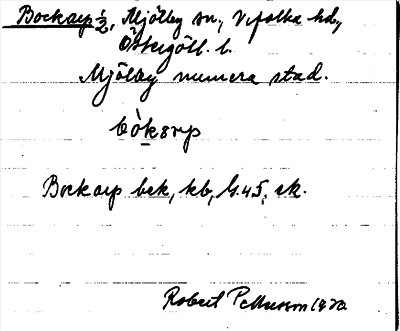 Bockarp ½, Mjölby sn, Vifolka hd,
Östergötl. l.
Mjölby numera stad.
bòksrp
Bockarp bek, kb, G.45, ek.
Robert Pettersson 1920